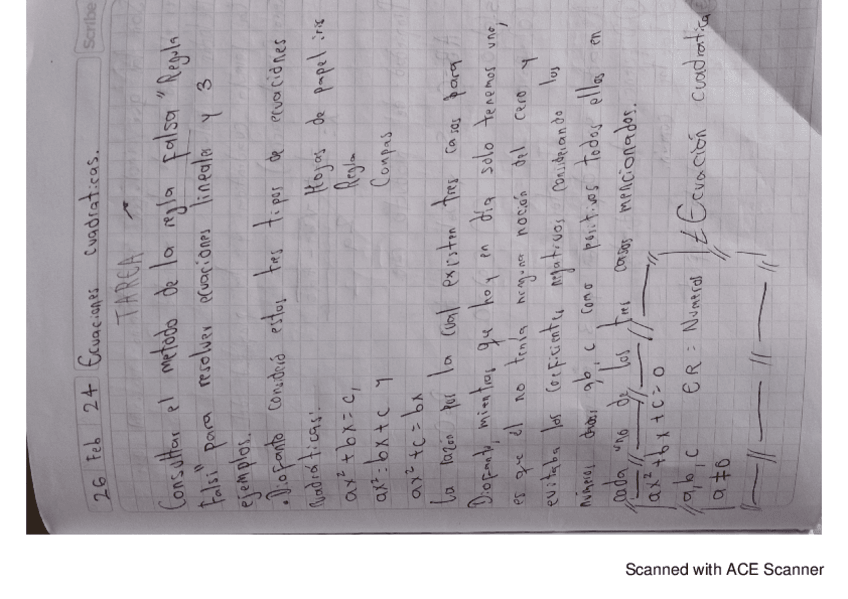 Scribe
26 Feb 24 Ecuaciones cuadraticas.
TAREA
Consultar el metodo de la regla falsa "Regula
Falsi" para resolver ecuaciones lineales y 3
ejemplos.
• Diofanto consideró estos tres tipos de ecuaciones
cuadráticas:
Hojas de papel iris
Regla
Compas
ax² + bx = c,
ax² = bx + c y
ax² + c = bx
La razon por la cual existen tres casos para
Diofanto, mientras que hoy en día solo tenemos uno,
es que él no tenía ninguna noción del cero y
evitaba los coeficientes negativos considerando los
números a, b, c como positivos todos ellos en
cada uno de los tres casos mencionados.
ax² + bx + c = 0
a, b, c ∈ R : Numeros
Ecuación cuadratica
a ≠ 0
Scanned with ACE Scanner